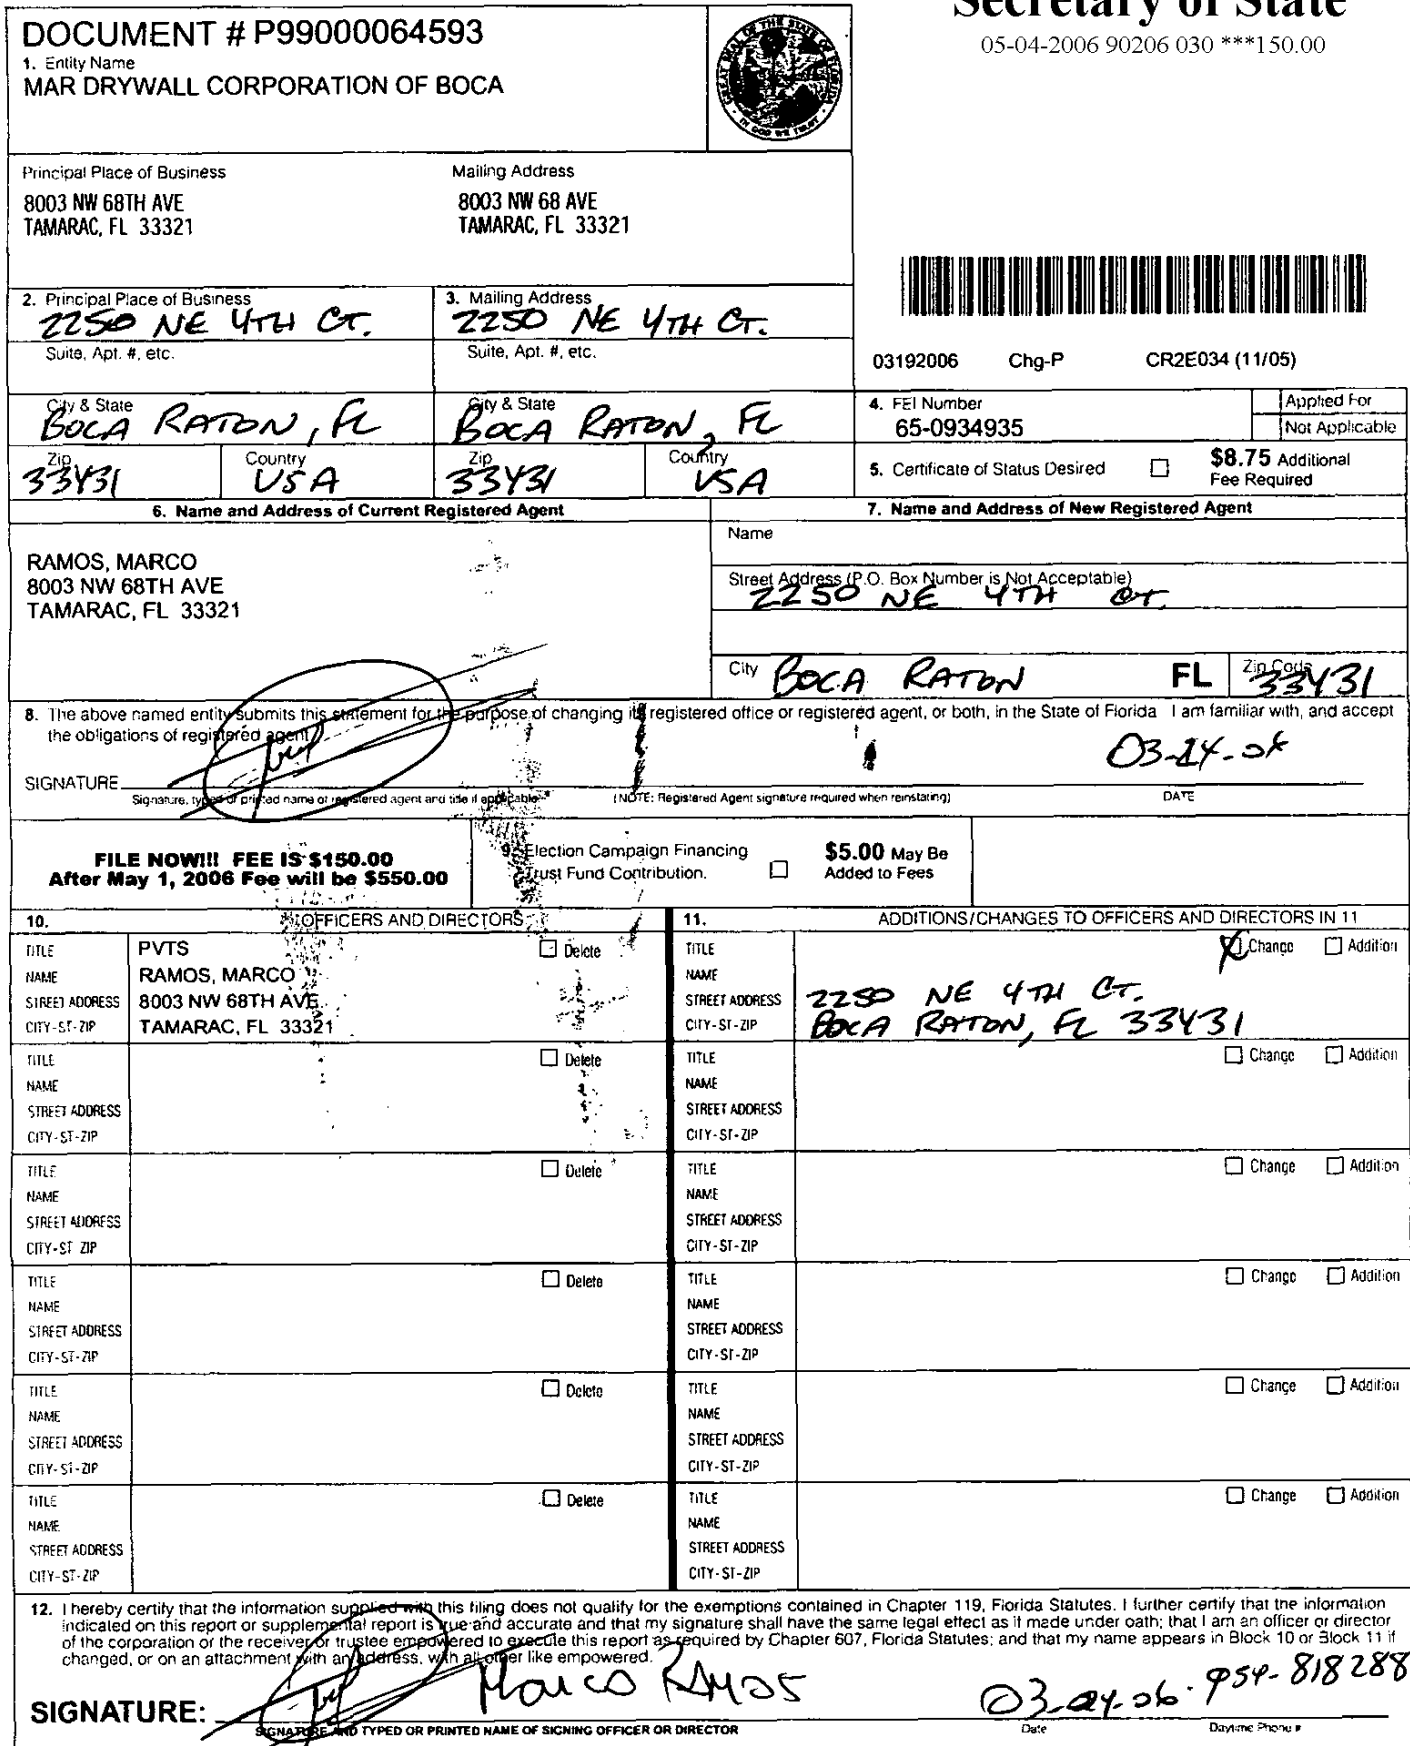 Secretary of State
05-04-2006 90206 030 ***150.00
DOCUMENT # P99000064593
1. Entity Name
MAR DRYWALL CORPORATION OF BOCA
Principal Place of Business
8003 NW 68TH AVE
TAMARAC, FL 33321
Mailing Address
8003 NW 68 AVE
TAMARAC, FL 33321
2. Principal Place of Business
2250 NE 4TH CT.
Suite, Apt. #, etc.
City & State
BOCA RATON, FL
Zip
33431
Country
USA
3. Mailing Address
2250 NE 4TH CT.
Suite, Apt. #, etc.
City & State
BOCA RATON, FL
Zip
33431
Country
USA
03192006 Chg-P CR2E034 (11/05)
4. FEI Number
65-0934935
Applied For
Not Applicable
5. Certificate of Status Desired
$8.75 Additional
Fee Required
6. Name and Address of Current Registered Agent
RAMOS, MARCO
8003 NW 68TH AVE
TAMARAC, FL 33321
7. Name and Address of New Registered Agent
Name
Street Address (P.O. Box Number is Not Acceptable)
2250 NE 4TH CT.
City BOCA RATON FL Zip Code 33431
8. The above named entity submits this statement for the purpose of changing its registered office or registered agent, or both, in the State of Florida I am familiar with, and accept
the obligations of registered agent
SIGNATURE
Signature, typed or printed name of registered agent and title if applicable
(NOTE: Registered Agent signature required when reinstating)
DATE
FILE NOW!!! FEE IS $150.00
After May 1, 2006 Fee will be $550.00
9. Election Campaign Financing
Trust Fund Contribution.
$5.00 May Be
Added to Fees
10. OFFICERS AND DIRECTORS
TITLE PVTS Delete
NAME RAMOS, MARCO
STREET ADDRESS 8003 NW 68TH AVE
CITY-ST-ZIP TAMARAC, FL 33321
TITLE Delete
NAME
STREET ADDRESS
CITY-ST-ZIP
TITLE Delete
NAME
STREET ADDRESS
CITY-ST ZIP
TITLE Delete
NAME
STREET ADDRESS
CITY-ST-ZIP
TITLE Delete
NAME
STREET ADDRESS
CITY-ST-ZIP
TITLE Delete
NAME
STREET ADDRESS
CITY-ST-ZIP
11. ADDITIONS/CHANGES TO OFFICERS AND DIRECTORS IN 11
TITLE X Change Addition
NAME
STREET ADDRESS 2250 NE 4TH CT.
CITY-ST-ZIP BOCA RATON, FL 33431
TITLE Change Addition
NAME
STREET ADDRESS
CITY-ST-ZIP
TITLE Change Addition
NAME
STREET ADDRESS
CITY-ST-ZIP
TITLE Change Addition
NAME
STREET ADDRESS
CITY-ST-ZIP
TITLE Change Addition
NAME
STREET ADDRESS
CITY-ST-ZIP
TITLE Change Addition
NAME
STREET ADDRESS
CITY-ST-ZIP
12. I hereby certify that the information supplied with this filing does not qualify for the exemptions contained in Chapter 119, Florida Statutes. I further certify that the information
indicated on this report or supplemental report is true and accurate and that my signature shall have the same legal effect as if made under oath; that I am an officer or director
of the corporation or the receiver or trustee empowered to execute this report as required by Chapter 607, Florida Statutes; and that my name appears in Block 10 or Block 11 if
changed, or on an attachment with an address, with all other like empowered.
SIGNATURE: Marco RAMOS 954-818288
SIGNATURE AND TYPED OR PRINTED NAME OF SIGNING OFFICER OR DIRECTOR
Date
Daytime Phone #